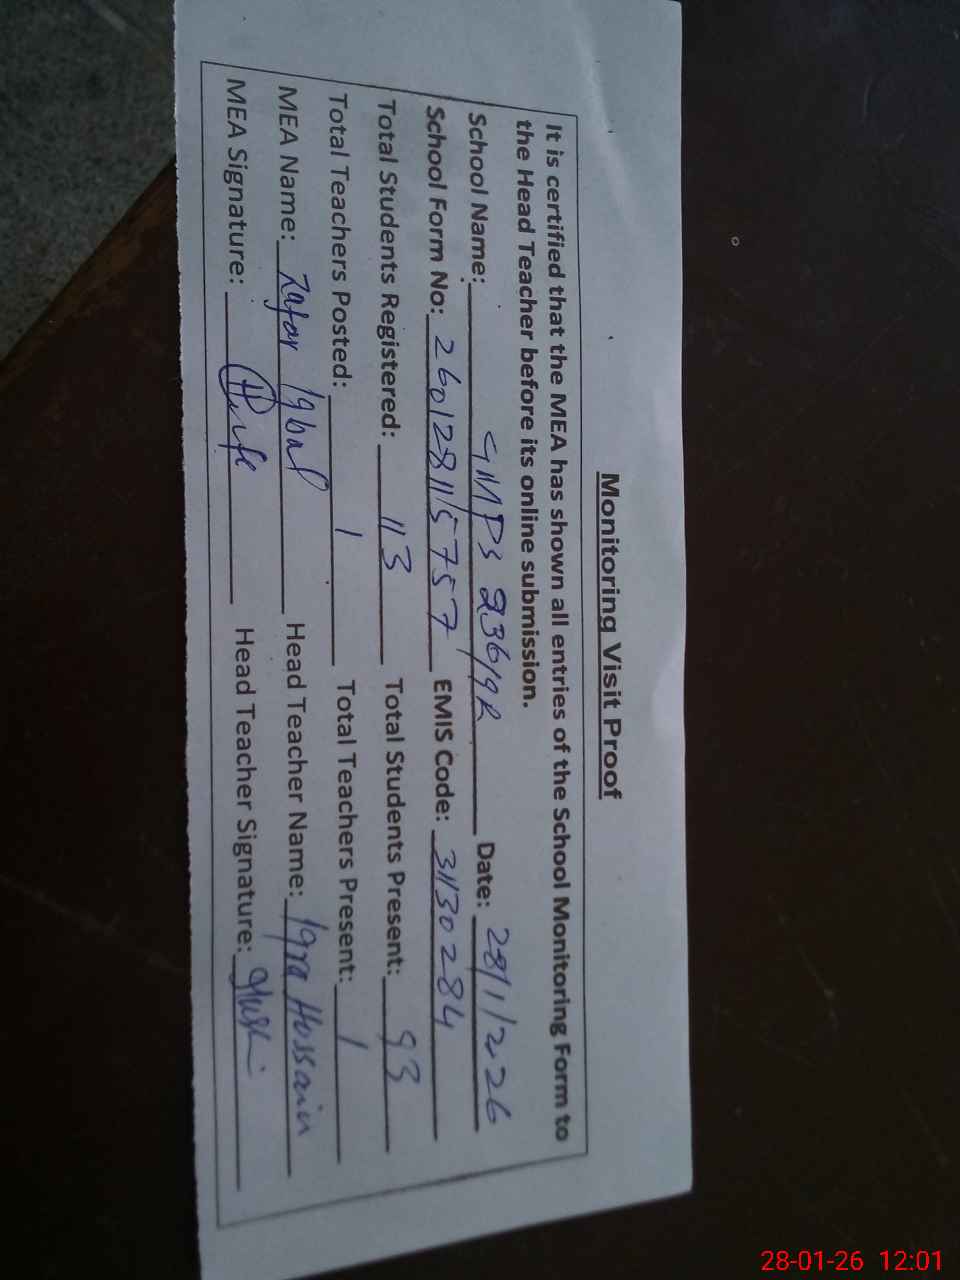 Monitoring Visit Proof
It is certified that the MEA has shown all entries of the School Monitoring Form to
the Head Teacher before its online submission.
School Name: GMPS 236/9R Date: 28/1/2026
School Form No: 260128115757 EMIS Code: 31130284
Total Students Registered: 113 Total Students Present: 93
Total Teachers Posted: 1 Total Teachers Present: 1
MEA Name: Zafar Iqbal Head Teacher Name: Iqra Hossain
MEA Signature: Head Teacher Signature:
28-01-26 12:01